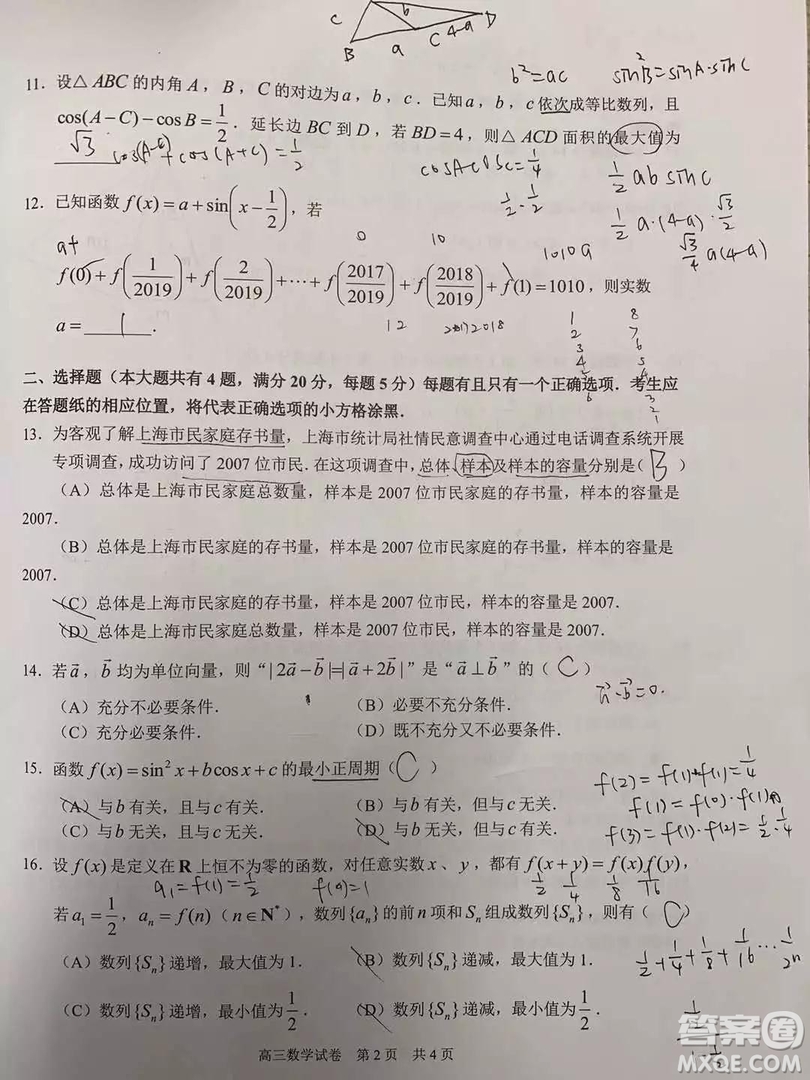 c
b
B
a
C
4-a
D
b²=ac
sin²B=sinA·sinC
11. 设△ABC的内角A，B，C的对边为a，b，c．已知a，b，c依次成等比数列，且
cos(A-C)-cosB=1/2．延长边BC到D，若BD=4，则△ACD面积的最大值为
√3
cos(A-C)+cos(A+C)=1/2
cosAcosC=1/4
1/2·1/2
1/2 absinC
1/2 a·(4-a)·√3/2
√3/4 a(4-a)
12. 已知函数f(x)=a+sin(x-1/2)，若
a+
0
10
1010a
f(0)+f(1/2019)+f(2/2019)+⋯+f(2017/2019)+f(2018/2019)+f(1)=1010，则实数
a=___1___．
12
20172018
1 8
2 7
3 6
4 5
二、选择题（本大题共有4题，满分20分，每题5分）每题有且只有一个正确选项．考生应
在答题纸的相应位置，将代表正确选项的小方格涂黑．
13. 为客观了解上海市民家庭存书量，上海市统计局社情民意调查中心通过电话调查系统开展
专项调查，成功访问了2007位市民．在这项调查中，总体、样本及样本的容量分别是（B）
（A）总体是上海市民家庭总数量，样本是2007位市民家庭的存书量，样本的容量是
2007．
（B）总体是上海市民家庭的存书量，样本是2007位市民家庭的存书量，样本的容量是
2007．
（C）总体是上海市民家庭的存书量，样本是2007位市民，样本的容量是2007．
（D）总体是上海市民家庭总数量，样本是2007位市民，样本的容量是2007．
14. 若a⃗，b⃗均为单位向量，则“|2a⃗-b⃗|=|a⃗+2b⃗|”是“a⃗⊥b⃗”的（C）
a⃗·b⃗=0.
（A）充分不必要条件． （B）必要不充分条件．
（C）充分必要条件． （D）既不充分又不必要条件．
15. 函数f(x)=sin²x+bcosx+c的最小正周期（C）
（A）与b有关，且与c有关． （B）与b有关，但与c无关．
（C）与b无关，且与c无关． （D）与b无关，但与c有关．
f(2)=f(1)·f(1)=1/4
f(1)=f(0)·f(1)
f(3)=f(1)·f(2)=1/2·1/4
16. 设f(x)是定义在R上恒不为零的函数，对任意实数x、y，都有f(x+y)=f(x)f(y)，
a₁=f(1)=1/2
f(0)=1
1/2 1/4 1/8 1/16
若a₁=1/2，aₙ=f(n)（n∈N*），数列{aₙ}的前n项和Sₙ组成数列{Sₙ}，则有（C）
（A）数列{Sₙ}递增，最大值为1． （B）数列{Sₙ}递减，最大值为1．
1/2+1/4+1/8+1/16⋯1/2ⁿ
（C）数列{Sₙ}递增，最小值为1/2． （D）数列{Sₙ}递减，最小值为1/2．
高三数学试卷 第2页 共4页
答案圈
MXQE.COM